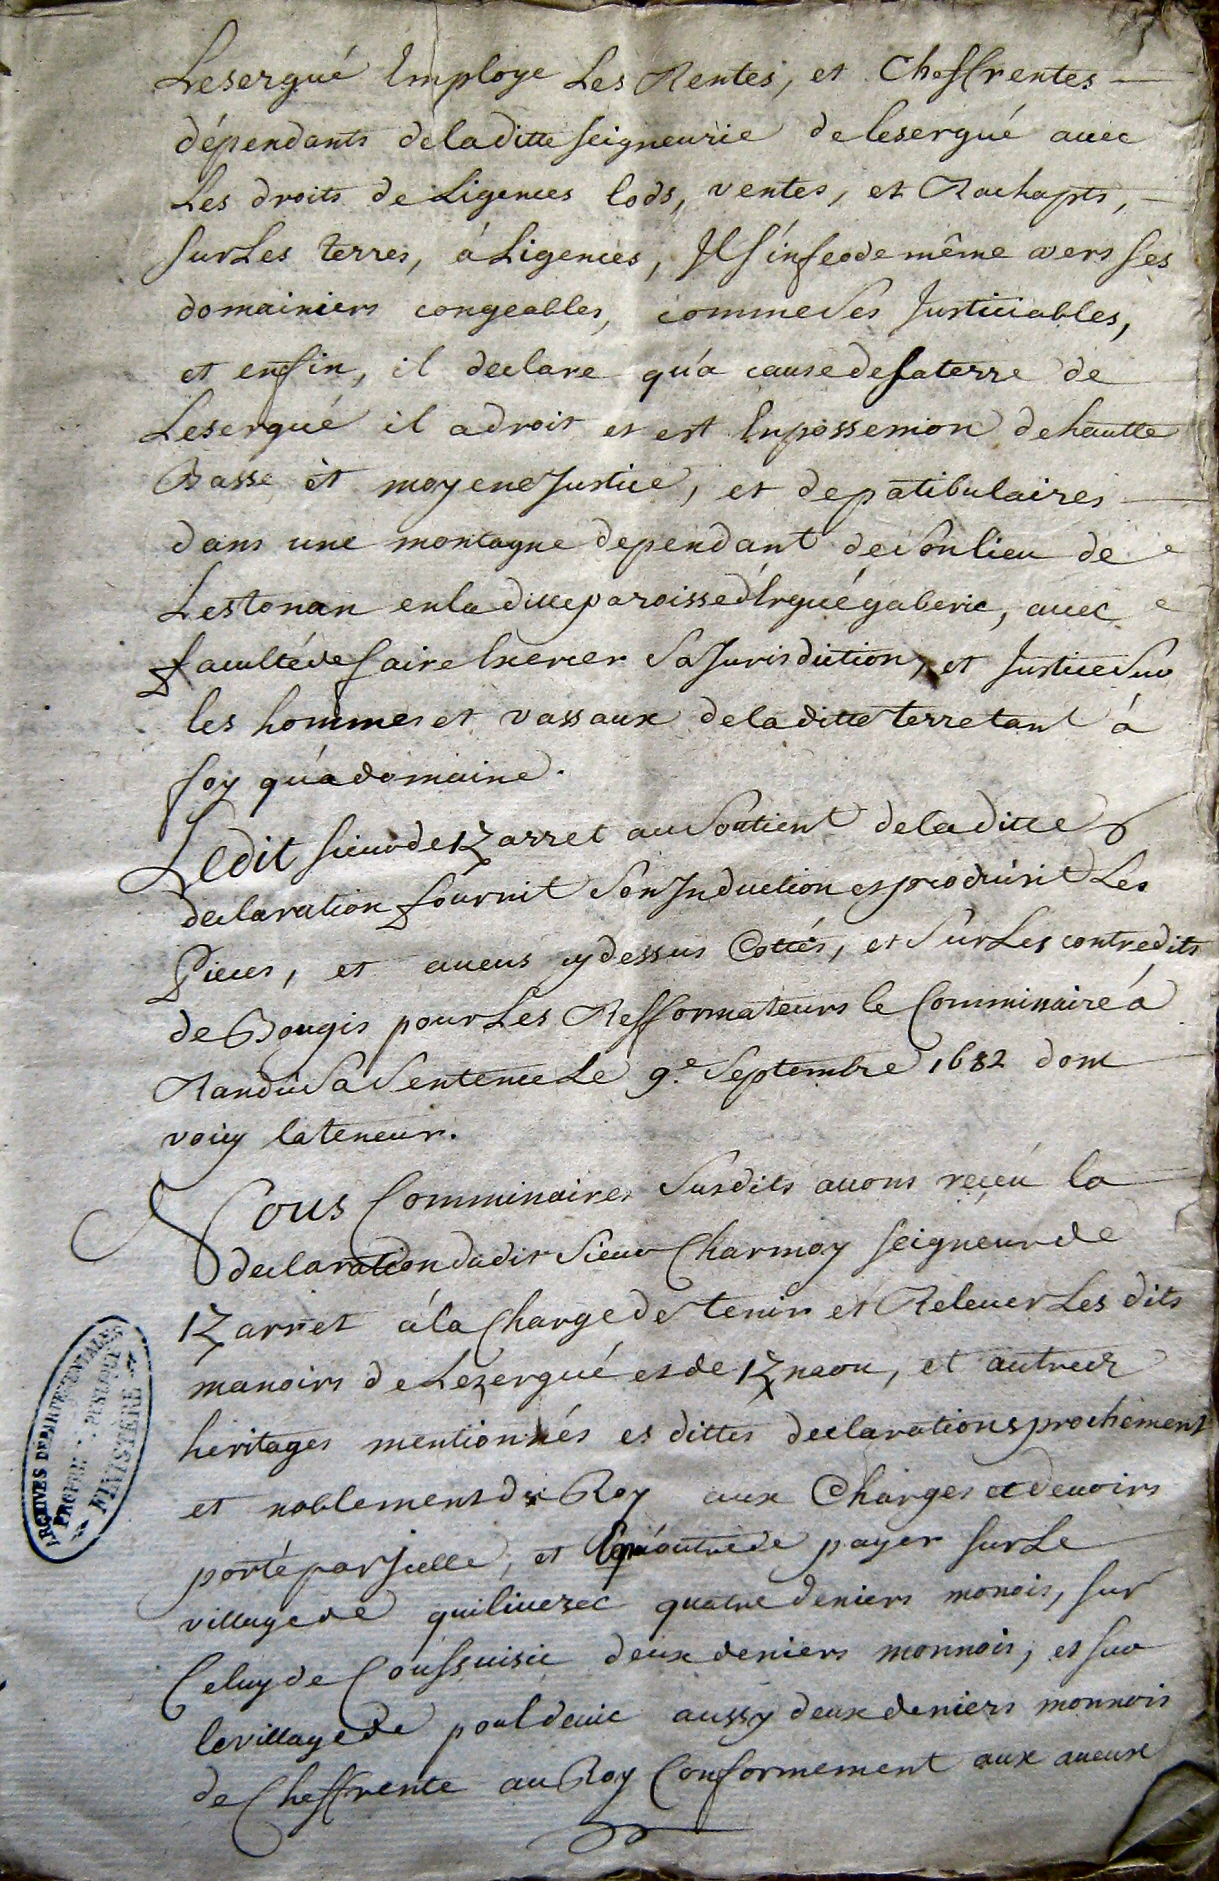 Lesergué Employe Les Rentes, et Cheffrentes
dépendants dela ditte seigneurie de lesergué avec
Les droits de Ligences lods, ventes, et Rachapts,
sur Les terres, à Ligences, Il s'infeode même vers ses
domainiers congeables, comme ses Justiciables,
et enfin, il declare qu'a cause de sa terre de
Lesergué il a droit et est En possession de hautte
Basse et moyene Justice, et de patibulaires
dans une montagne dependant de son lieu de
Lestonan en la ditte paroisse d'Ergué gaberic, avec
faculté de faire Exercer sa Jurisdiction, et Justice sur
les hommes et vassaux de la ditte terre tant à
foy qu'a domaine.
Ledit sieur de Kzarret au soutient de la ditte
declaration fournit son Induction et produisit Les
Pieces, et aveus cy dessus Cottés, et sur Les contredits
de Bougis pour Les Refformateurs le Commissaire à
Randu sa sentence Le 9.e Septembre 1682 dont
voicy la teneur.
Nous Commissaires susdits avons reçeu la
declaration dudit sieur Charmoy seigneur de
Kzarret à la Charge de tenir et Relever Les dits
manoirs de Lezergué et de Kznaou, et autres
héritages mentionnés es dittes declarations prochement
et noblement du Roy aux Charges et devoirs
porté par Icelle, et outre de payer sur Le
village de quilivezec quatre deniers monois, sur
Celuy de Coussuisic deux deniers monnois, et sur
le village de pouldeuic aussy deux deniers monnois
de Cheffrente au Roy Conformement aux aveux
ARCHIVES DEPARTEMENTALES
PROPRIÉTÉ PUBLIQUE
FINISTÈRE